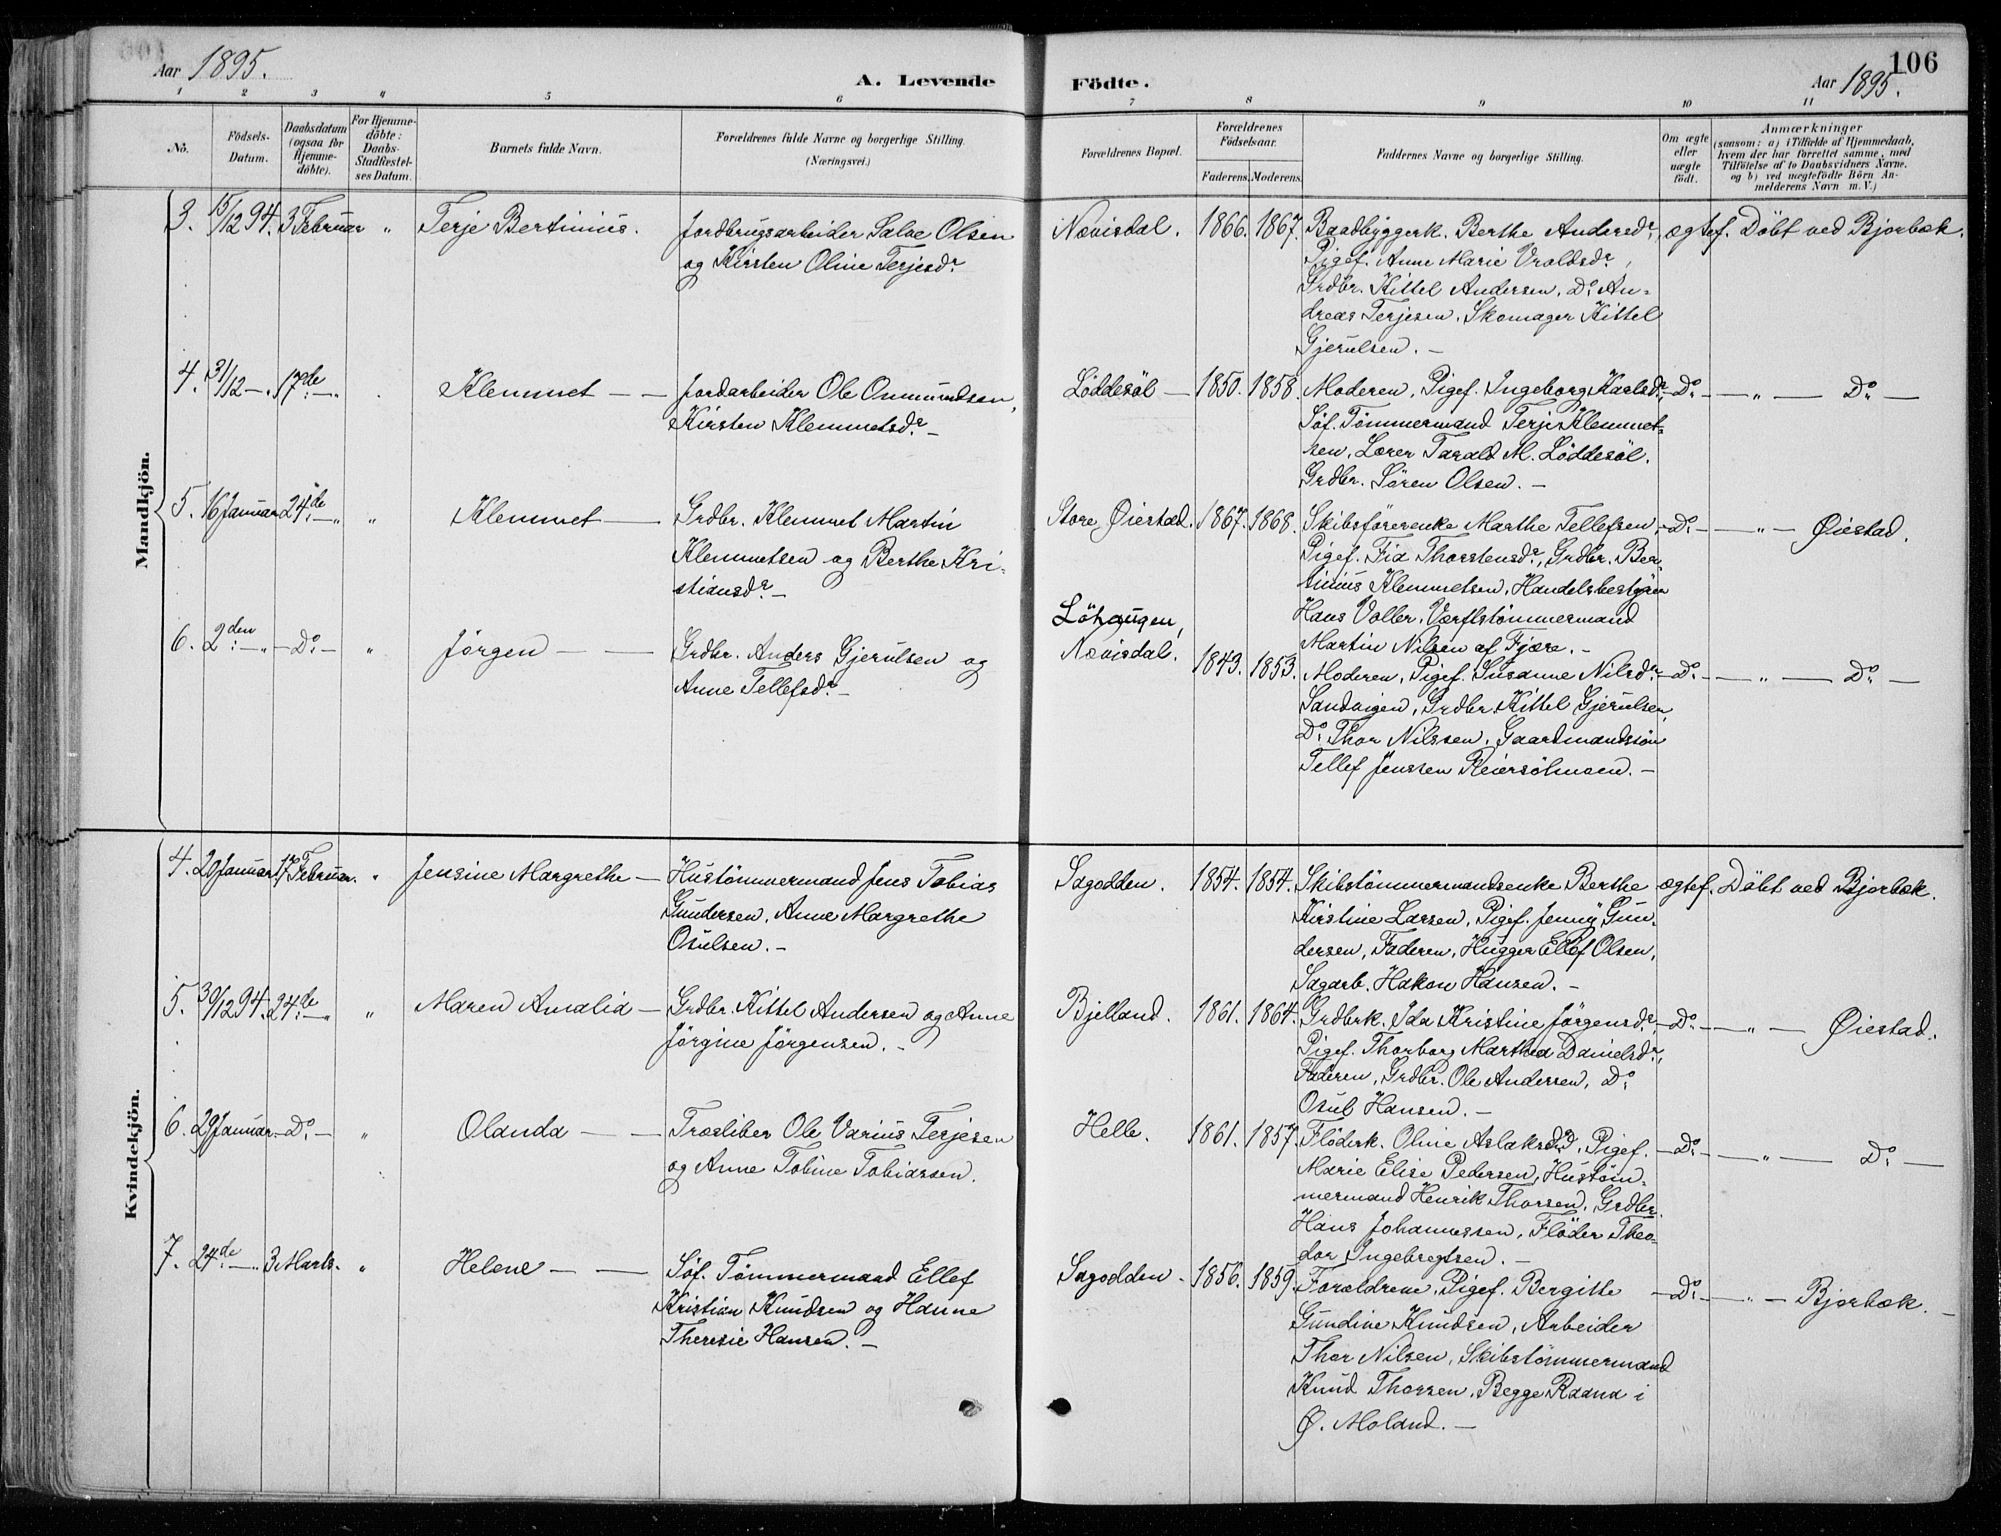 Aar 1895.
A. Levende
Födte.
Aar 1895.
106
1 2 3 4 5 6 7 8 9 10 11
No.
Födsels-
Datum.
Daabsdatum
(ogsaa for
Hjemme-
döbte).
For Hjemme-
döbte:
Daabs-
Stadfæstel-
ses Datum.
Barnets fulde Navn.
Forældrenes fulde Navne og borgerlige Stilling.
(Næringsvei.)
Forældrenes Bopæl.
Forældrenes
Födselsaar.
Faderens. Moderens.
Faddernes Navne og borgerlige Stilling.
Om ægte
eller
uægte
födt.
Anmærkninger
(saasom: a) i Tilfælde af Hjemmedaab,
hvem der har forrettet samme, med
Tilföielse af to Daabsvidners Navne.
og b) ved uægtefödte Börn An-
melderens Navn m. V.)
Mandkjön.
3. 15/12 94. 3 Februar " Terje Bertinius.
Jordbrugsarbeider Salve Olsen
og Kirsten Oline Terjesdr
Nævisdal. 1866. 1867.
Baadbyggerk. Berthe Andersdr,
Pigef. Anne Marie Vroldsdr,
Grdbr. Kittel Andersen, Do An-
dreas Terjesen, Skomager Kittel
Gjerulsen. —
ægtef. Döbt ved Bjorbæk.
4. 31/12 —. 17de — " Klemmet — —
Jordarbeider Ole Onmundsen,
Kirsten Klemmetsdr —
Löddesöl — 1850. 1858.
Moderen, Pigef. Ingeborg Karlsdr,
Söf. Tömmermand Terje Klemmet-
sen, Lærer Tarald M. Löddesöl.
Grdbr. Sören Olsen. —
— Do — — " — Do —
5. 16 Januar 24de — " " Klemmet —
Grdbr. Klemmet Martin
Klemmetsen og Berthe Kri-
stiansdr —
Store Øiestad. 1867. 1868.
Skibsförerenke Marthe Tellefsen,
Pigef. Fia Thorstensdr, Grdbr. Ber-
tinius Klemmetsen, Handelsbestyrer
Hans Voller, Værftstömmermand
Martin Nilsen af Fjære. —
— Do — — " — Øiestad.
6. 2den — " — Do — " Jörgen — —
Grdbr. Anders Gjerulsen og
Anne Tellefsdr —
Löhaugen,
Nævisdal. 1843. 1853.
Moderen, Pigef. Susanne Nilsdr
Sandvigen, Grdbr. Kittel Gjerulsen,
Do Thor Nilssen, Gaardmandssön
Tellef Jenssen Reiersölmoen. —
— Do — — " — Do —
Kvindekjön.
4. 20 Januar 17 Februar. " Jensine Margrethe —
Hustömmermand Jens Tobias
Gundersen, Anne Margrethe
Osulsen. —
Sagodden. 1854. 1854.
Skibstömmermandsenke Berthe
Kirstine Larsen, Pigef. Jenny Gun-
dersen, Faderen, Hugger Ellef Olsen,
Sagarb. Hakon Hansen. —
ægtef. Döbt ved Bjorbæk.
5. 30/12 94. 24de — " " Maren Amalia —
Grdbr. Kittel Andersen og Anne
Jörgine Jörgensen. —
Bjelland. 1861. 1864.
Grdbrk. Ida Kristine Jörgensdr,
Pigef. Thorborg Marthea Danielsdr,
Faderen, Grdbr. Ole Andersen, Do
Osul Hansen. —
— Do — — " — Øiestad.
6. 29 Januar. — Do — " Olanda — —
Træsliber Ole Varius Terjesen
og Anne Tobine Tobiassen.
Helle. 1861. 1857.
Flöderk. Oline Aslaksd, Pigef.
Marie Elise Pedersen, Hustöm-
mermand Henrik Thorsen, Grdbr.
Hans Johannessen, Flöder Theo-
dor Ingebregtsen. —
— Do — — " — Do —
7. 24de — " 3 Marts. " Helene — —
Söf. Tömmermand Ellef
Kristian Knudsen og Hanne
Theresie Hansen. —
Sagodden. 1856. 1859.
Forældrene, Pigef. Bergitte
Gundine Knudsen, Arbeider
Thor Nilsen, Skibstömmermand
Knud Thorsen, Begge Raana i
Ø. Moland. —
— Do — — " — Bjorbæk. —